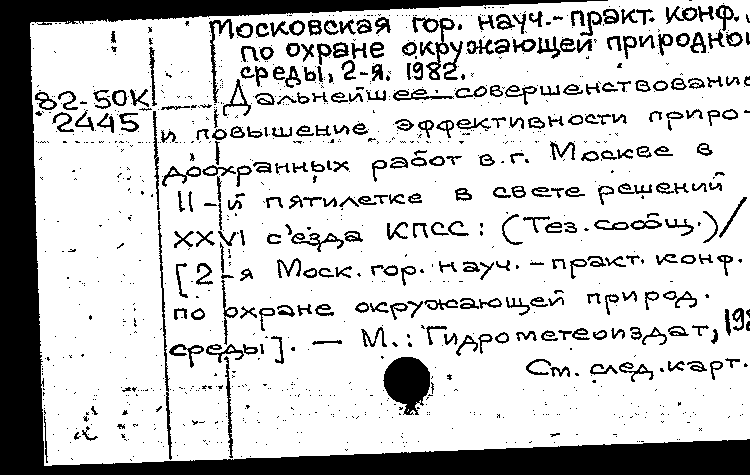 Московская гор. науч.-практ. конф.
по охране окружающей природно
среды, 2-я. 1982.
82-50К
2445
Дальнейшее совершенствование
и повышение эффективности приро-
доохранных работ в г. Москве в
11-й пятилетке в свете решений
XXVI съезда КПСС: (Тез. сообщ.)/
[2-я Моск. гор. науч. - практ. конф.
по охране окружающей природ.
среды]. — М.: Гидрометеоиздат, 198
См. след. карт.